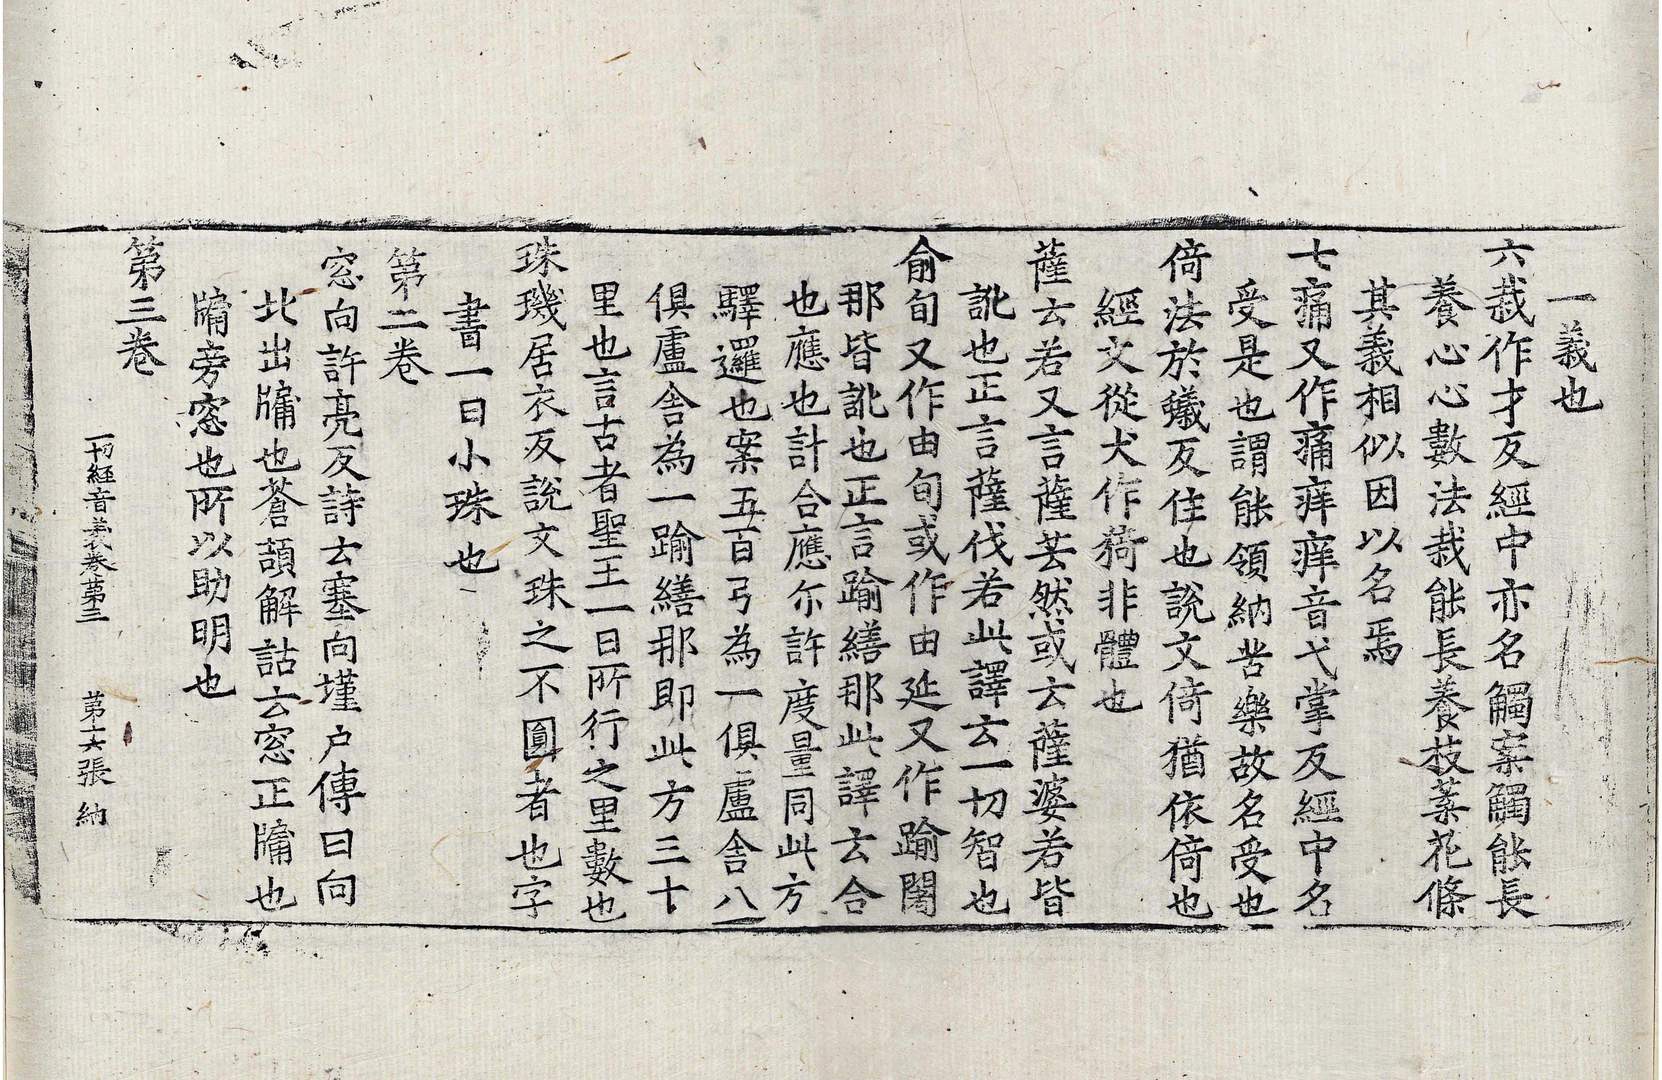 一義也
六栽作才反經中亦名觸案觸能長
養心心數法栽能長養枝葉花條
其義相似因以名焉
七痛又作痛痒痒音弋掌反經中名
受是也謂能領納苦樂故名受也
倚法於蟻反住也說文倚猶依倚也
經文從犬作猗非體也
薩云若又言薩芸然或云薩婆若皆
訛也正言薩伐若此譯云一切智也
俞旬又作由旬或作由延又作踰闍
那皆訛也正言踰繕那此譯云合
也應也計合應尒許度量同此方
驛邏也案五百弓為一俱盧舍八
俱盧舍為一踰繕那即此方三十
里也言古者聖王一日所行之里數也
珠璣居衣反說文珠之不圓者也字
書一曰小珠也
第二卷
窓向許亮反詩云塞向墐户傳曰向
北出牖也蒼頡解詁云窓正牖也
牖旁窓也所以助明也
第三卷
一切經音義卷第三 第十六張 納